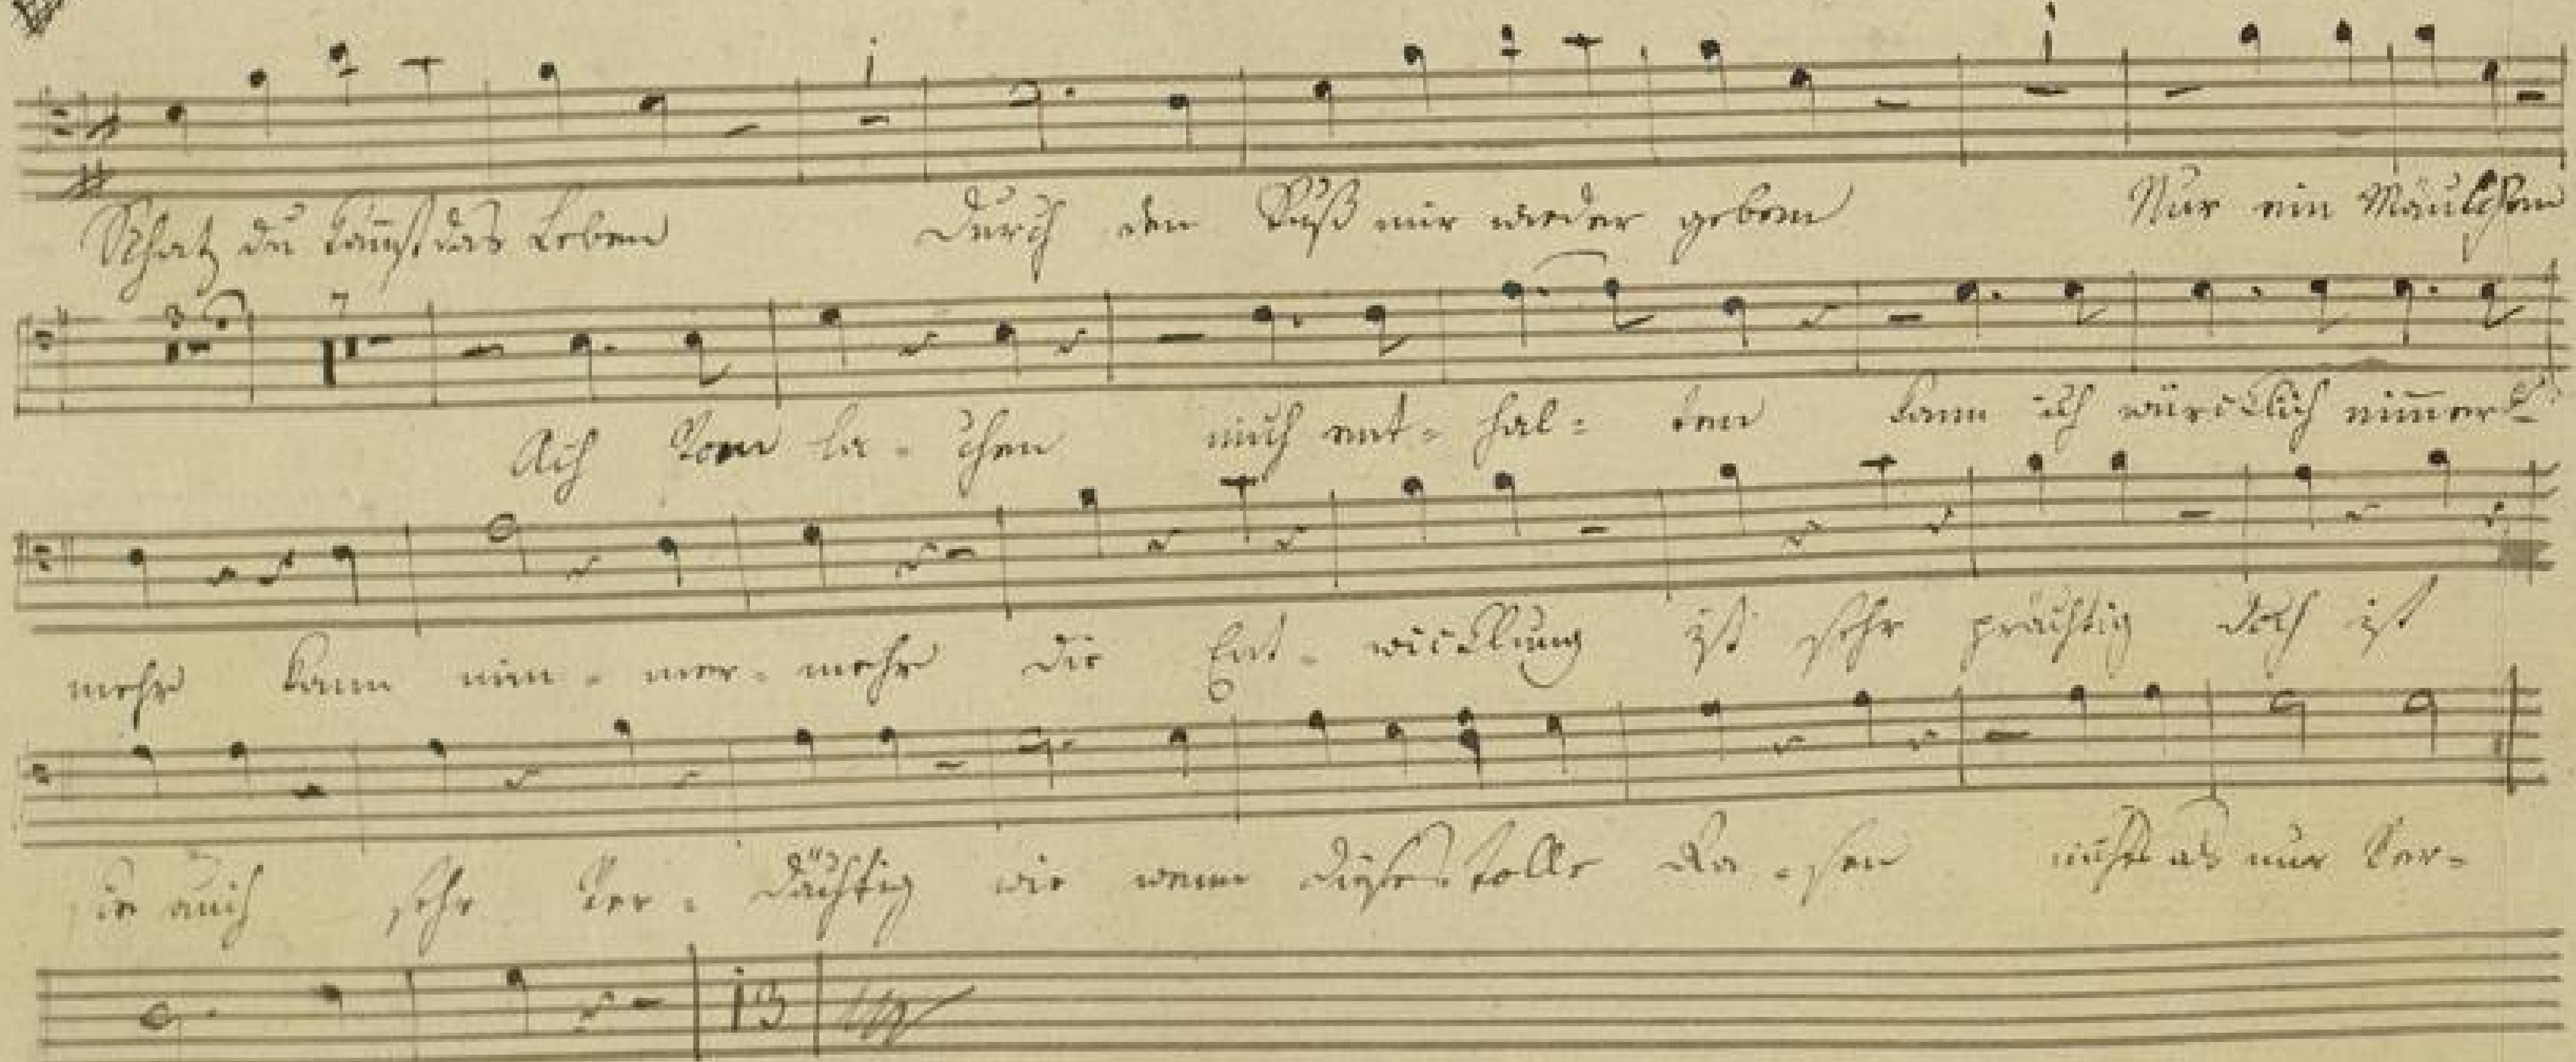 Schatz du kannst das Leben Durch den Kuß mir wieder geben Nur ein Mäulchen
3 7
Ach vom la - chen mich ent- hal- ten kann ich würcklich nimmer
mehr kann nim - mer- mehr die Ent- wicklung ist sehr prächtig doch ist
sie auch sehr ver- dächtig wie wenn dieses tolle Ra - sen nichts als nur Ver-
13